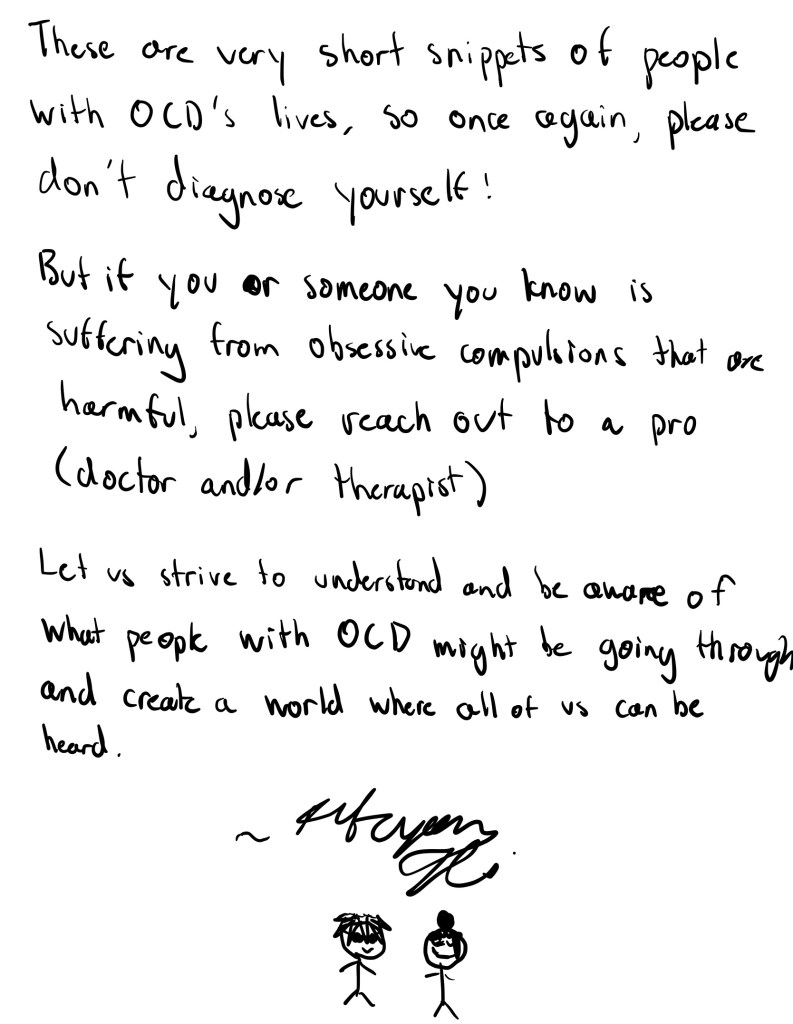 These are very short snippets of people
with OCD's lives, so once again, please
don't diagnose yourself!
But if you or someone you know is
suffering from obsessive compulsions that are
harmful, please reach out to a pro
(doctor and/or therapist)
Let us strive to understand and be aware of
what people with OCD might be going through
and create a world where all of us can be
heard.
~